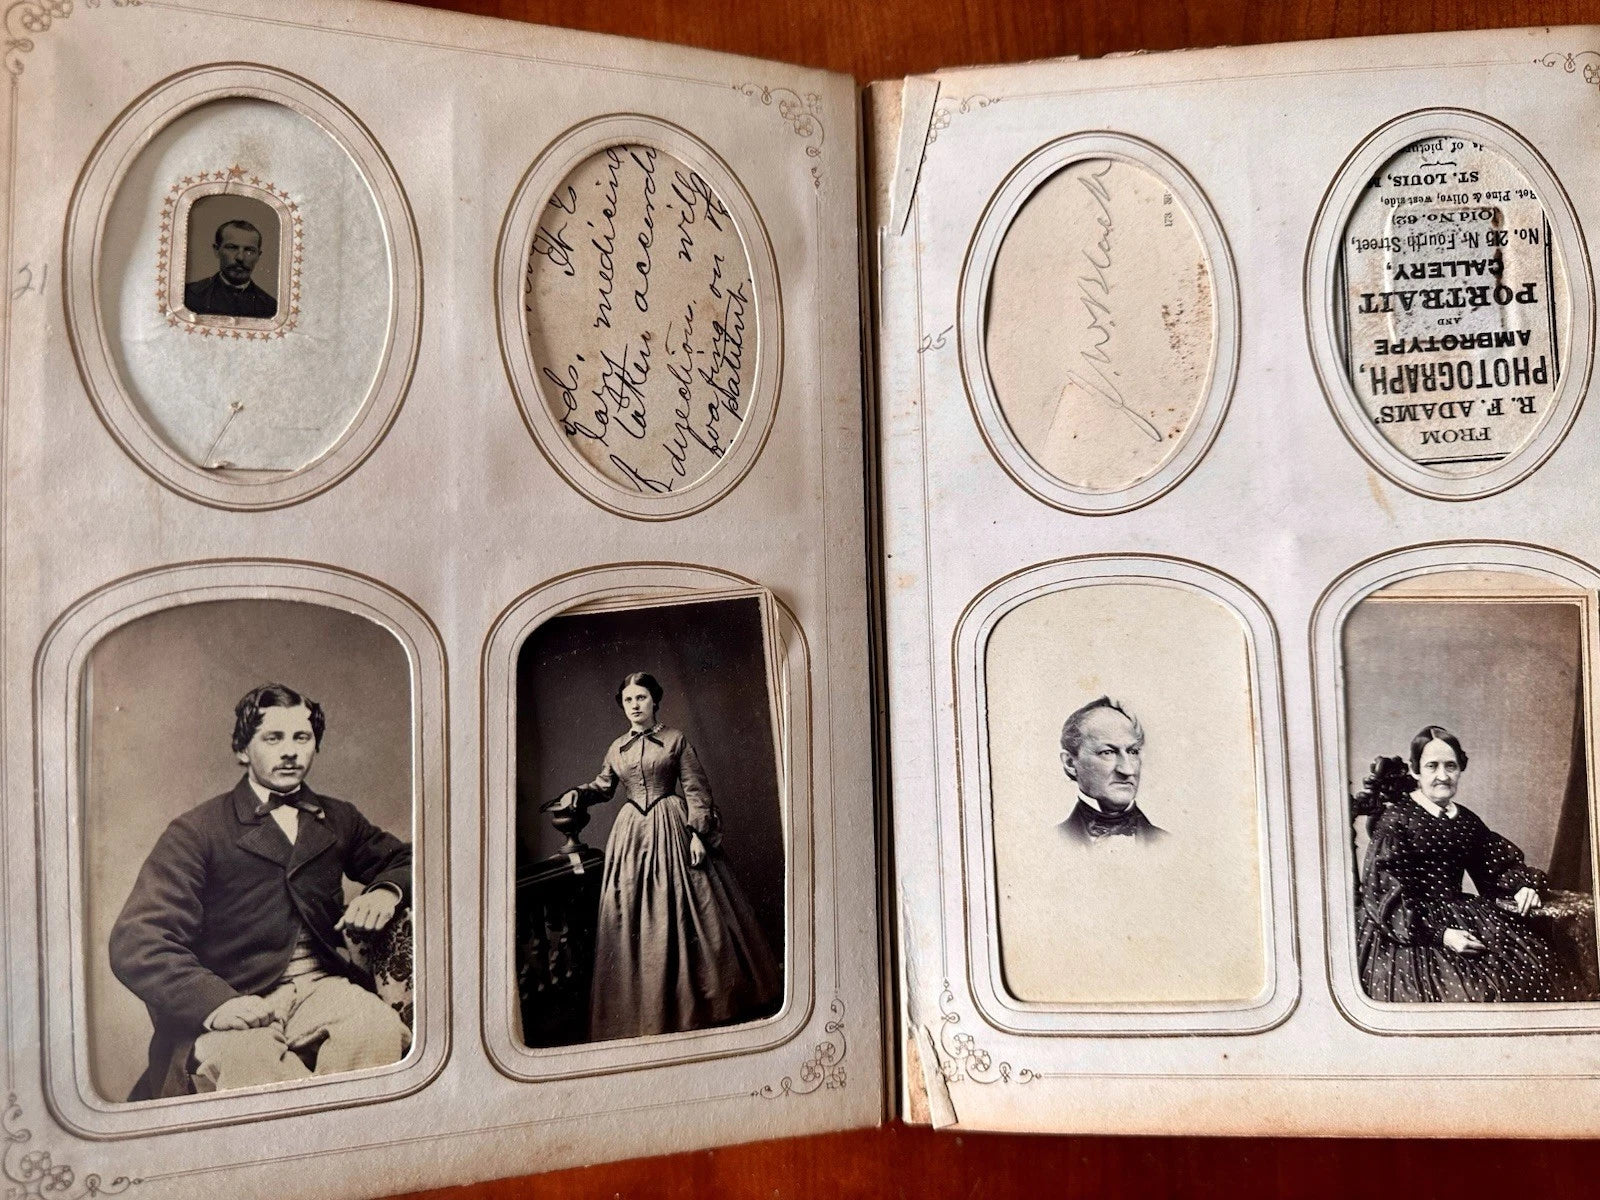 21
It is
ods.
lary medicine
f taken accordi
directions. will
forating on the
patient.
25
J. W.
173 BR
FROM
R. F. ADAMS'
PHOTOGRAPH,
AMBROTYPE
AND
PORTRAIT
GALLERY,
No. 215 N. Fourth Street,
(Old No. 62)
Bet. Pine & Olive, west side,
ST. LOUIS, M
ds of pictur